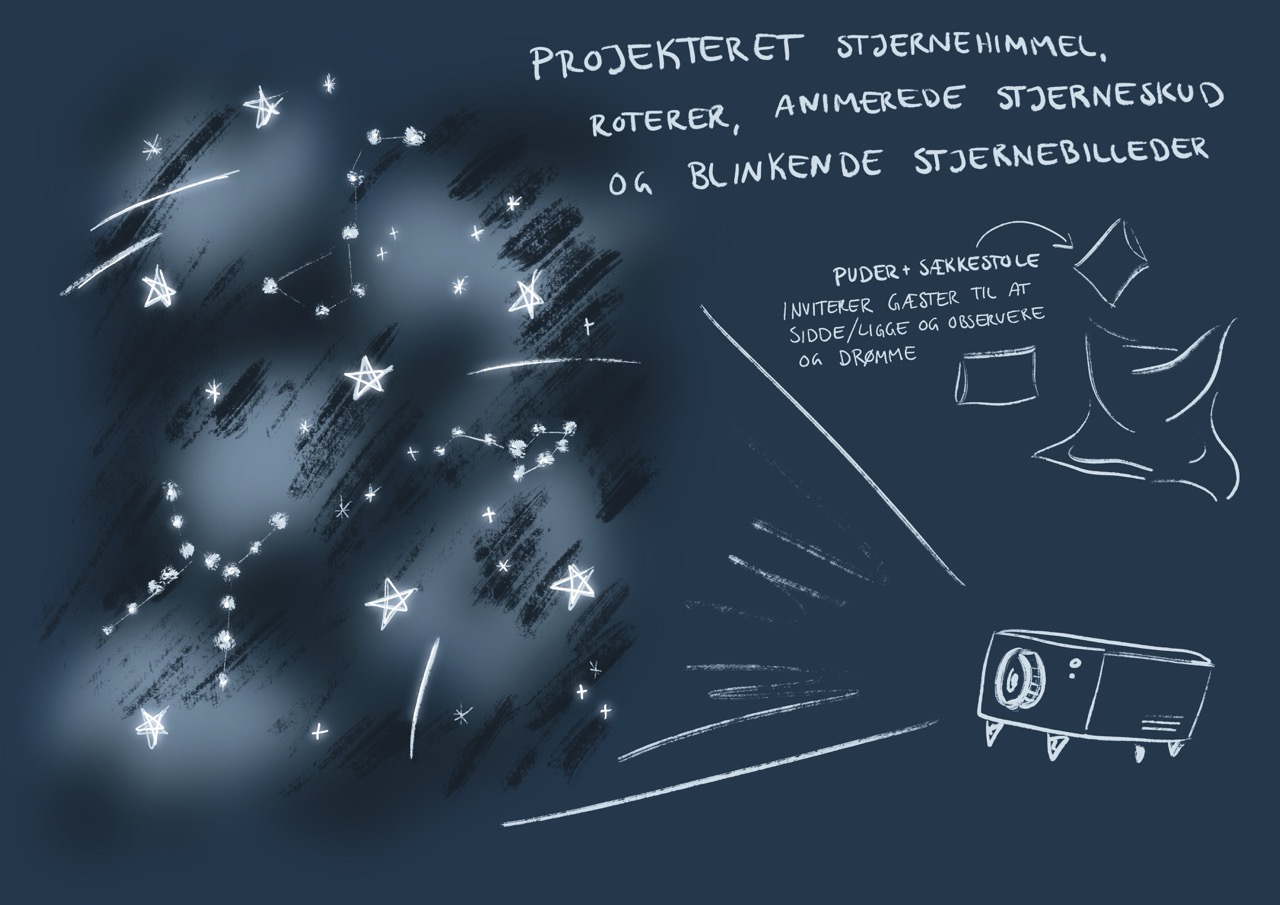 PROJEKTERET STJERNEHIMMEL,
ROTERER, ANIMEREDE STJERNESKUD
OG BLINKENDE STJERNEBILLEDER
PUDER + SÆKKESTOLE
INVITERER GÆSTER TIL AT
SIDDE/LIGGE OG OBSERVERE
OG DRØMME